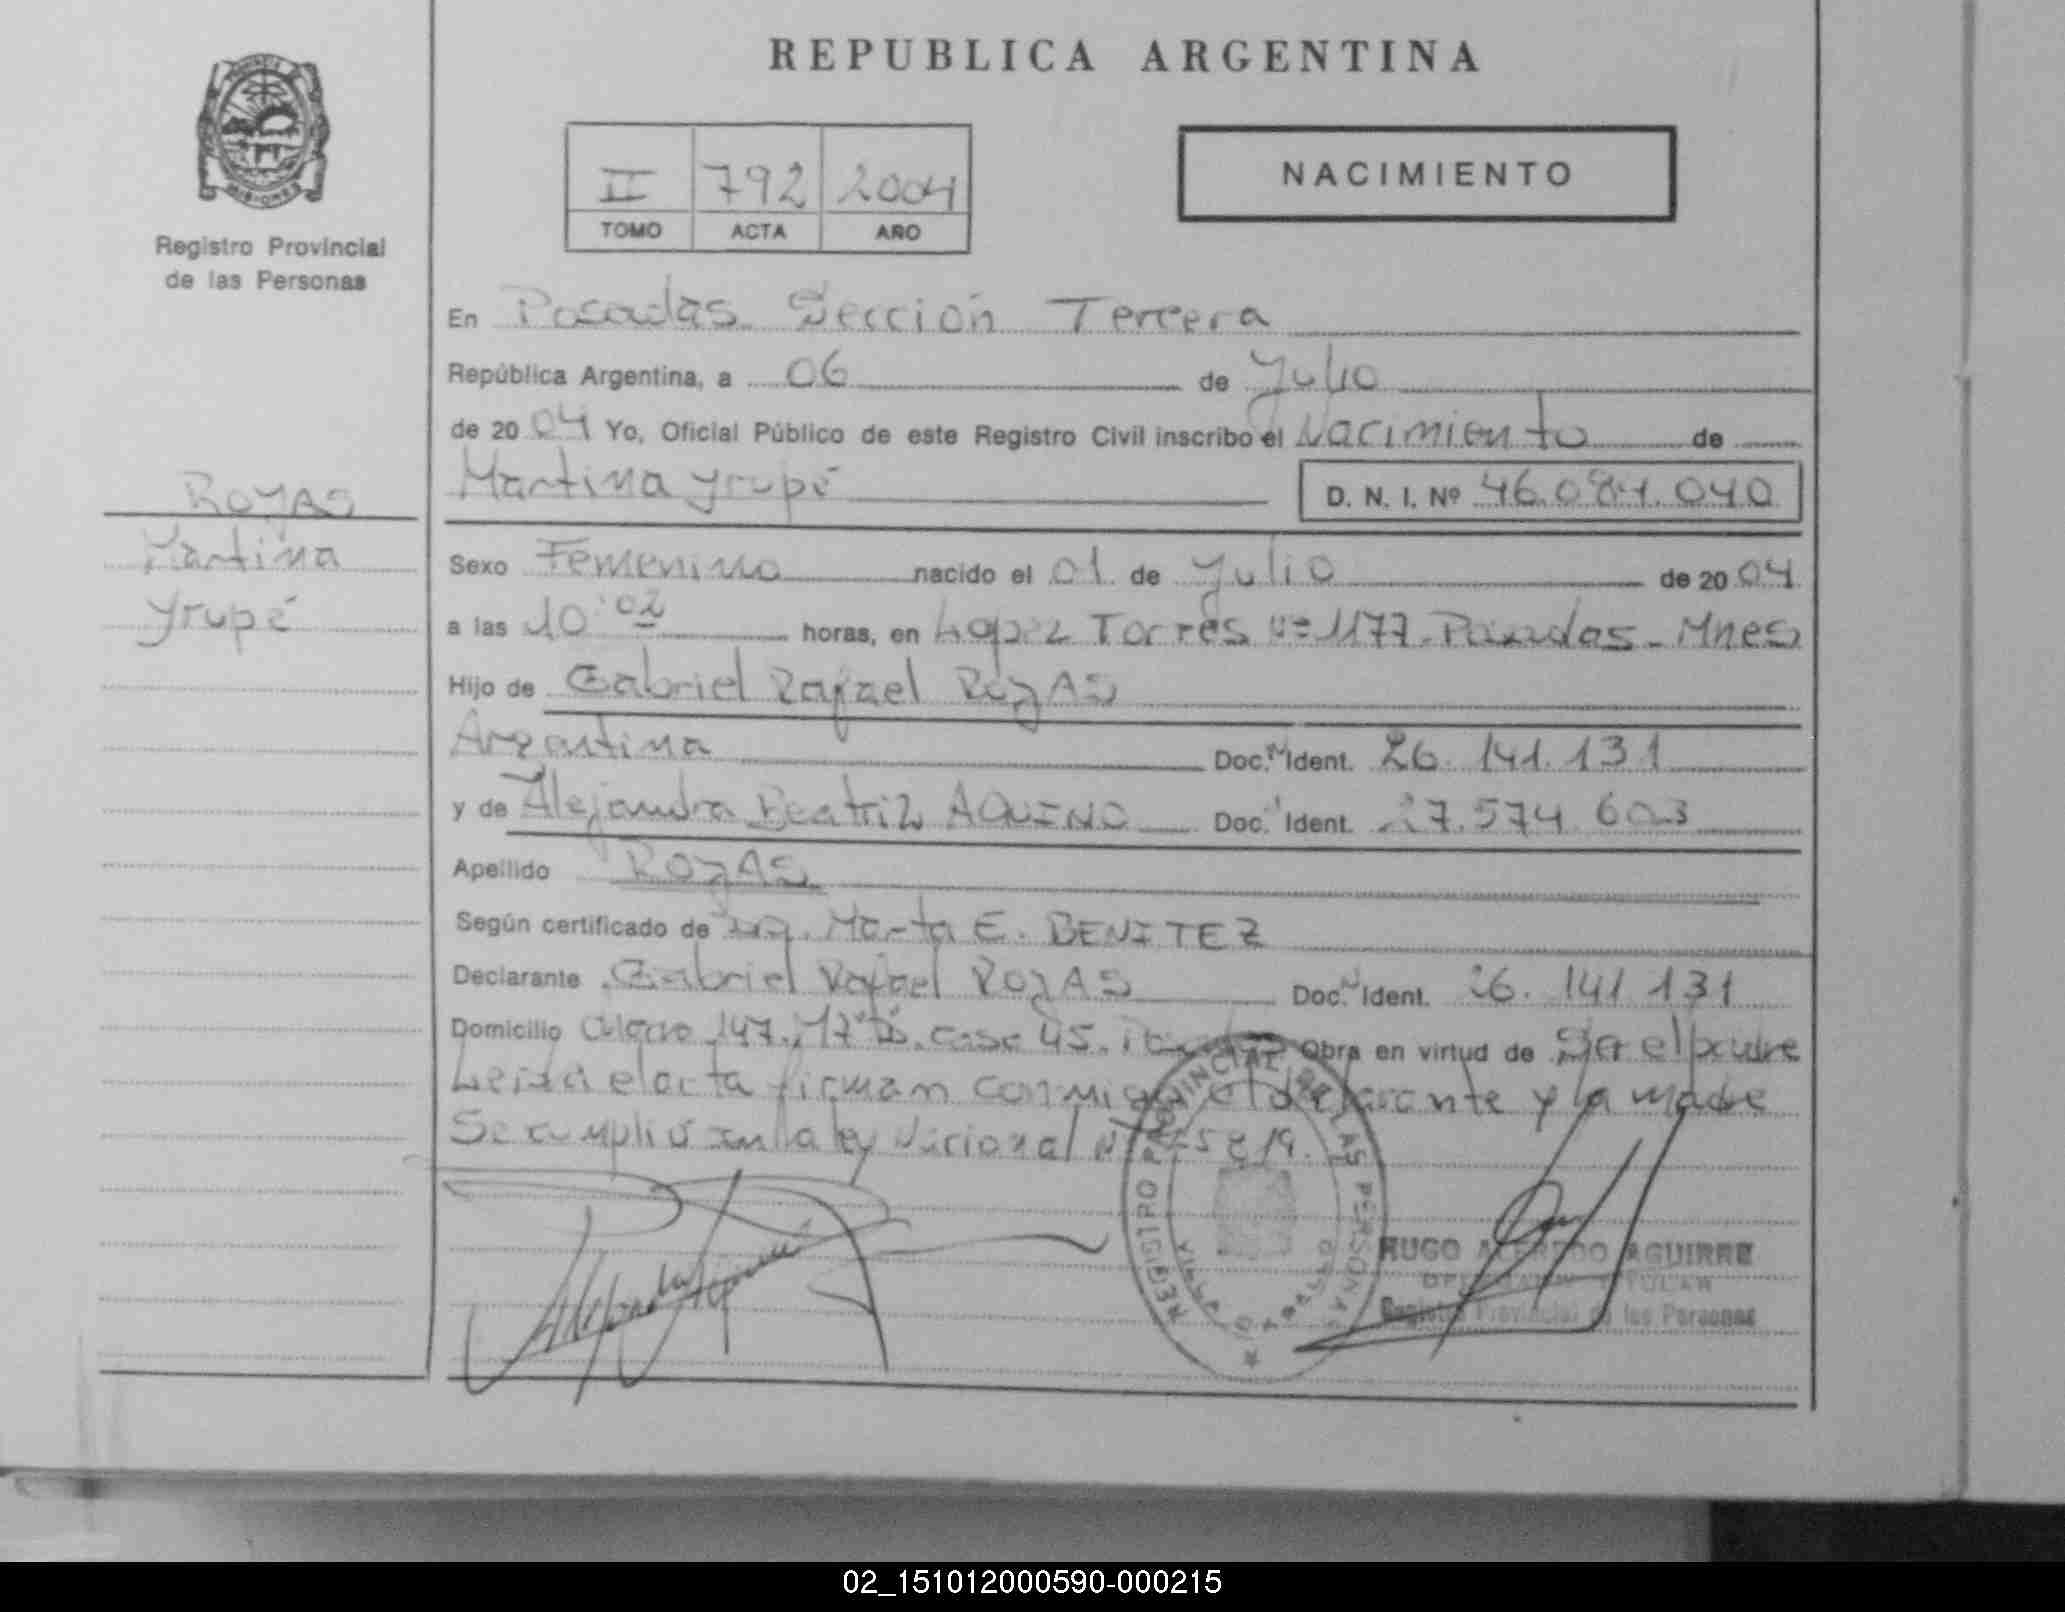 REPUBLICA ARGENTINA
PROVINCIA DE MISIONES
Registro Provincial
de las Personas
II 792 2004
TOMO ACTA AÑO
NACIMIENTO
En Posadas Sección Tercera
República Argentina, a 06 de Julio
de 2004 Yo, Oficial Público de este Registro Civil inscribo el Nacimiento de
Martina Yrupé D. N. I. Nº 46.084.040
ROJAS
Martina
Yrupé
Sexo Femenino nacido el 01 de Julio de 2004
a las 10:02 horas, en Lopez Torres nº 1177. Posadas - Mnes
Hijo de Gabriel Rafael ROJAS
Argentina Doc. N Ident. 26.141.131
y de Alejandra Beatriz AQUINO Doc. Ident. 27.574.603
Apellido ROJAS
Según certificado de Marta E. BENITEZ
Declarante Gabriel Rafael ROJAS Doc. N Ident. 26.141.131
Domicilio 147. casa 45. Obra en virtud de Ser el padre
Leida el acta firman conmigo el declarante y la madre
Se cumplió con la ley Nacional
REGISTRO PROVINCIAL DE LAS PERSONAS
HUGO ALFREDO AGUIRRE
OFICIAL TITULAR
Registro Provincial de las Personas
02_151012000590-000215